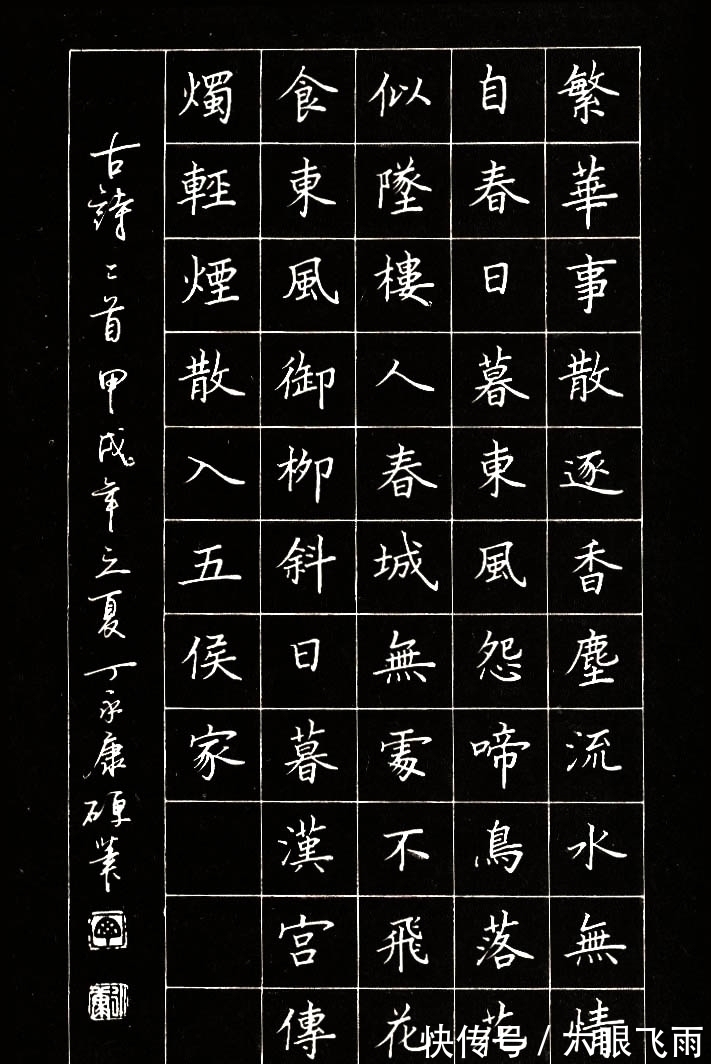 繁華事散逐香塵流水無情
自春日暮東風怨啼鳥落花
似墜樓人春城無處不飛花
食東風御柳斜日暮漢宮傳
燭輕煙散入五侯家
古詩二首甲戌年之夏丁永康硬筆
快传号/大眼飞雨